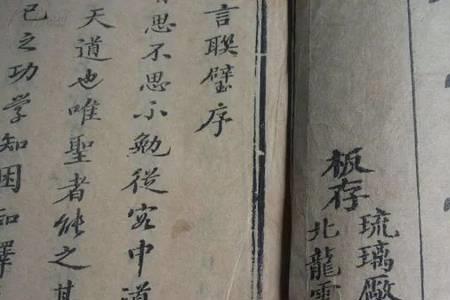 板存
琉璃廠
北龍
言聯璧序
思不思不勉從容中道
天道也唯聖者能之其
己之功学知困知擇